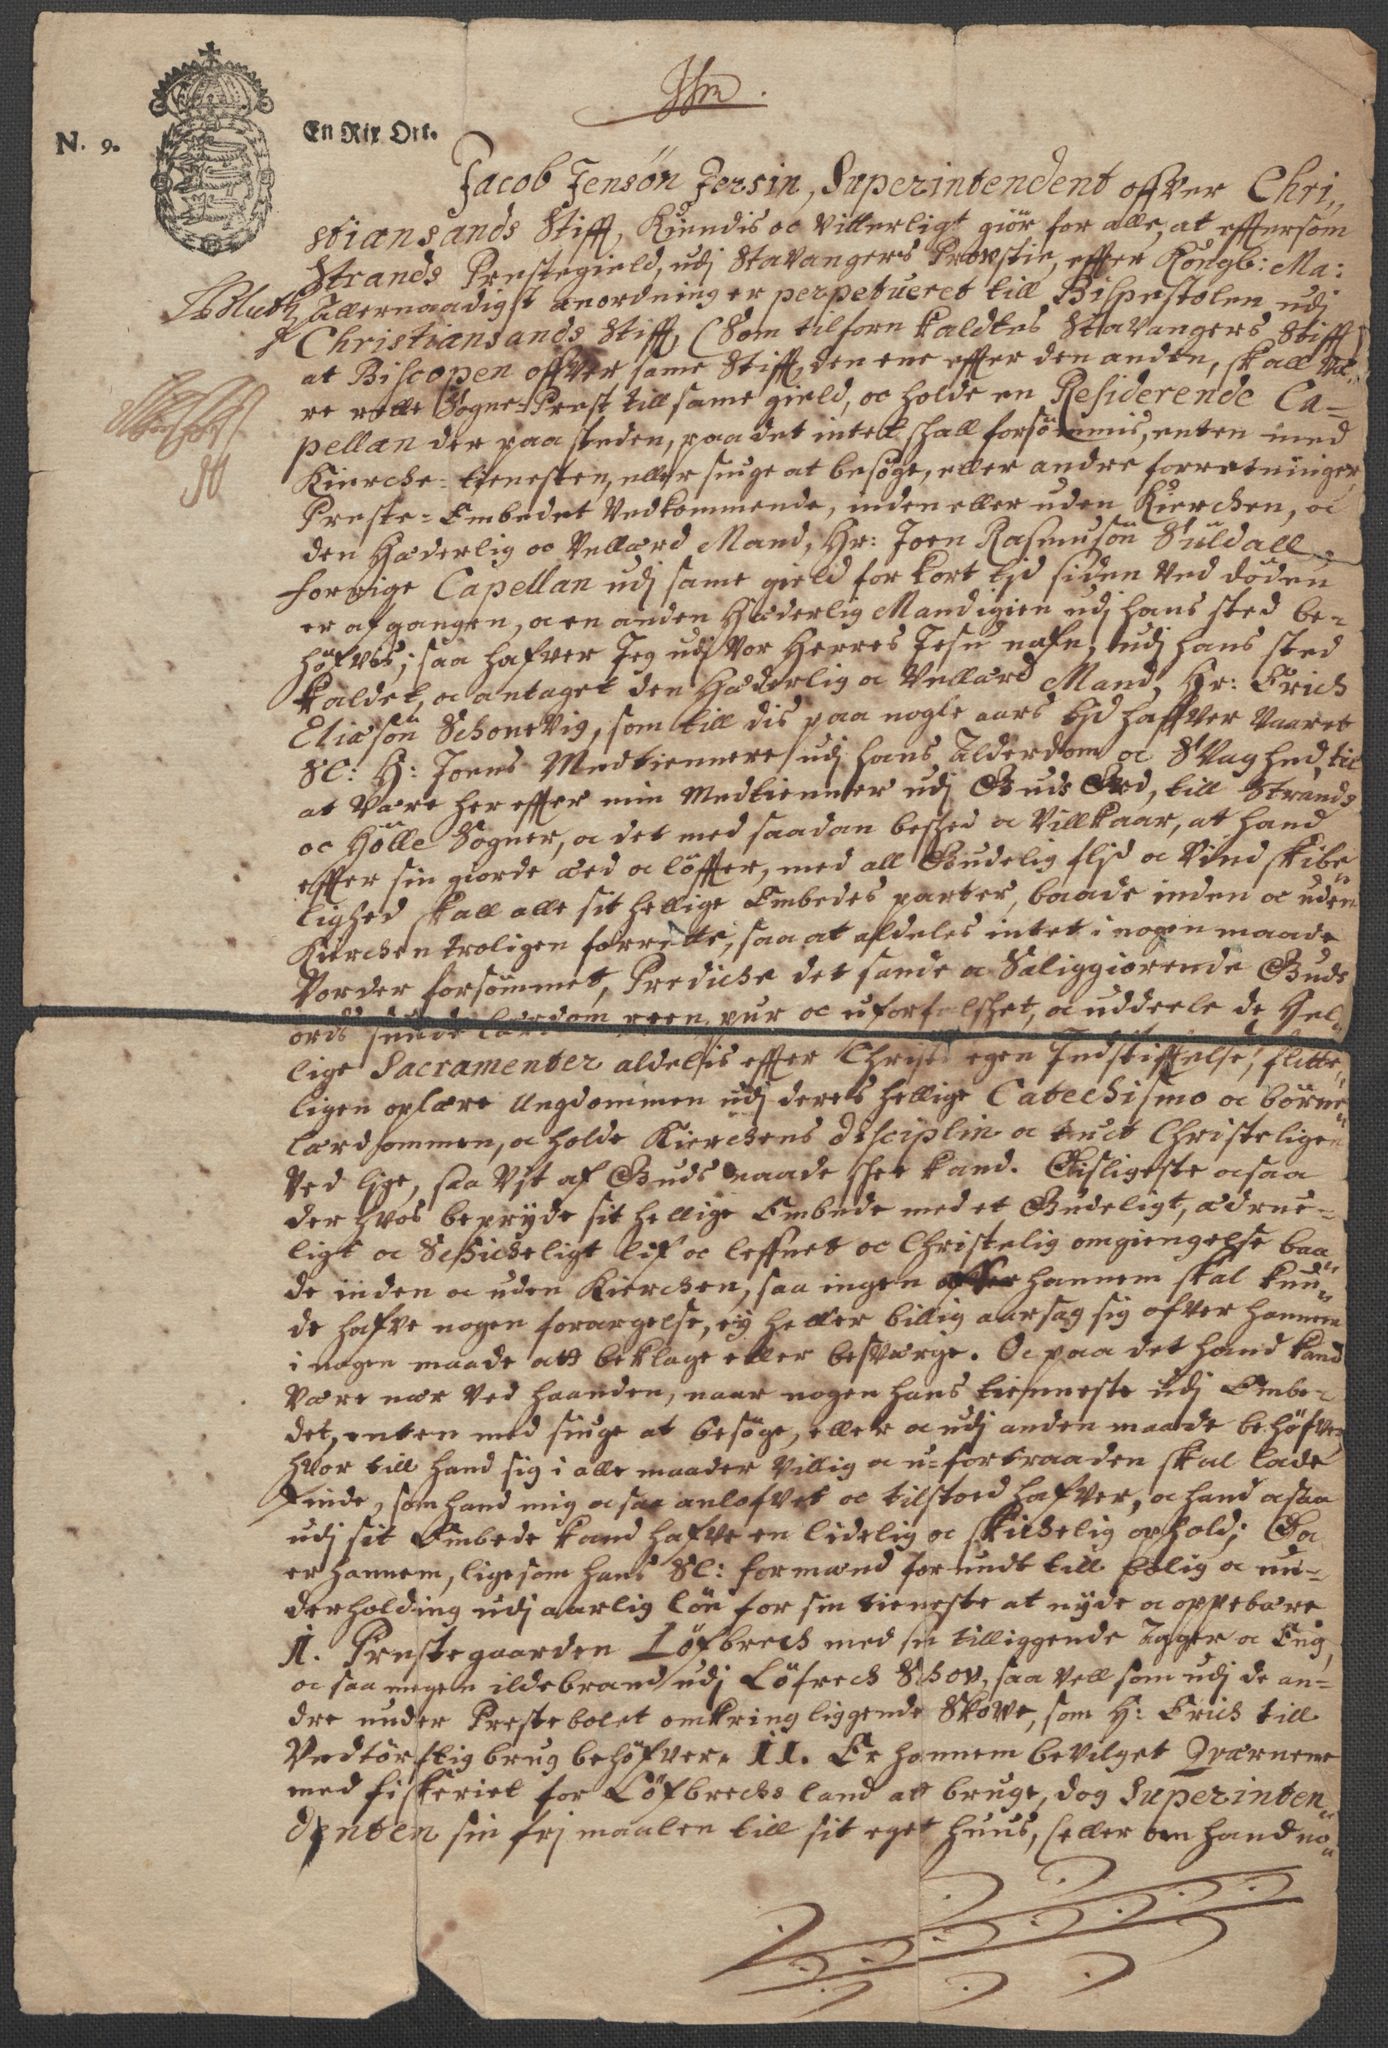 N. 9.
En Rix Ort.
Jacob Jensön Jersin, Superintendent offver Chri,,
stiansands Stifft, Kiendis oc Vitterligt giör for alle, at effersom
Strands Prestegield, udj Stavangers Provstie, effter Kongl: Ma:
Allernaadigst anordning er perpetueret till Bispestolen udj
Christiansands Stifft, (Som tilforn kaldtes Stavangers Stifft
at Biscopen offver same Stifft, den ene effter den anden, skall væ-
re rette Sogne-Prest till same gield, oc holde en Residerende Ca-
pellan der paa steden, paa det intet skall forsömmis, enten med
Kierche-tienesten, eller siuge at besöge, eller andre forretninger
Preste-Embedet Vedkommende, inden eller uden Kierchen, oc
den Hæderlig oc Vellærd Mand, Hr: Joen Rasmusön Suldall
forrige Capellan udj same gield for kort tjd siden Ved döden
er afgangen, oc en anden Hæderlig Mand igien udj hans sted be-
höfves; saa hafver Jeg udj Vor Herres Jesu nafn, udj hans sted
kaldet, oc antaget den Hæderlig oc Vellærd Mand, Hr: Erich
Eliæsön Schonevig, som till dis paa nogle aars tjd haffver vaaret
Sl: Hr: Joens Medtiennere udj hans Alderdom oc Svaghed, til
at være her effter min Medtienner udj Guds Ord, till Strands
oc Hölle Sogner, oc det med saadan besked oc Villkaar, at hand
effter sin giorde æed oc löffter, med all Gudelig flid oc Vindskibe-
lighed skall alle sit hellige Embedes parter, baade inden oc uden
Kierchen troligen forrette, saa at aldeles intet i nogen maade
Vorder forsömmet, Prediche det sande oc Saliggiörende Guds
ords sunde lærdom reen, pur oc uforfalsket, oc uddeele de Hel-
lige Sacramenter aldelis effter Christi egen Indstifftelse, flitte-
ligen oplære Ungdommen udj deres hellige Catechismo oc börne-
lærdommen, oc holde Kierchens disciplin oc tuct Christeligen
Ved lige, saa vjt af Guds naade skee kand. Disligeste oc saa
der hvos bepryde sit hellige Embede med et Gudeligt, ædrue-
ligt oc Skickeligt lif oc leffnet oc Christelig omgiengelse baa-
de inden oc uden Kierchen, saa ingen offver hannem skal kun-
de hafve nogen forargelse, ej heller billig aarsag sig ofver hannem
i nogen maade at beklage eller besværge. Oc paa det hand kand
være nær ved haanden, naar nogen hans tienneste udj Embe-
det, enten med siuge at besöge, eller oc udj anden maade behöfver
hvor till hand sig i alle maader villig oc u-fortraaden skal lade
finde, som hand mig oc saa anlofvet oc tilstoed hafver, oc hand oc saa
udj sit Embede kand hafve en lidelig oc skickelig ophold; Da
er hannem, ligesom hans Sl: formænd forundt till bolig oc un-
derholding udj aarlig lön for sin tieneste at nyde oc oppebære
I. Prestegaarden Löfbrech med sin tilliggende Agger oc Eng,
oc saa megen ildebrand udj Löfrech Schov, saa vell som udj de an-
dre under Prestebolet omkring liggende Skove, som Hr: Erich till
Vedtörftig brug behöfver. II. Er hannem bevilget Qværnene
med fiskeriet for Löfbrechs land at bruge, dog Superinten-
denten sin frj maalen till sit eget huus, (eller om hand no-